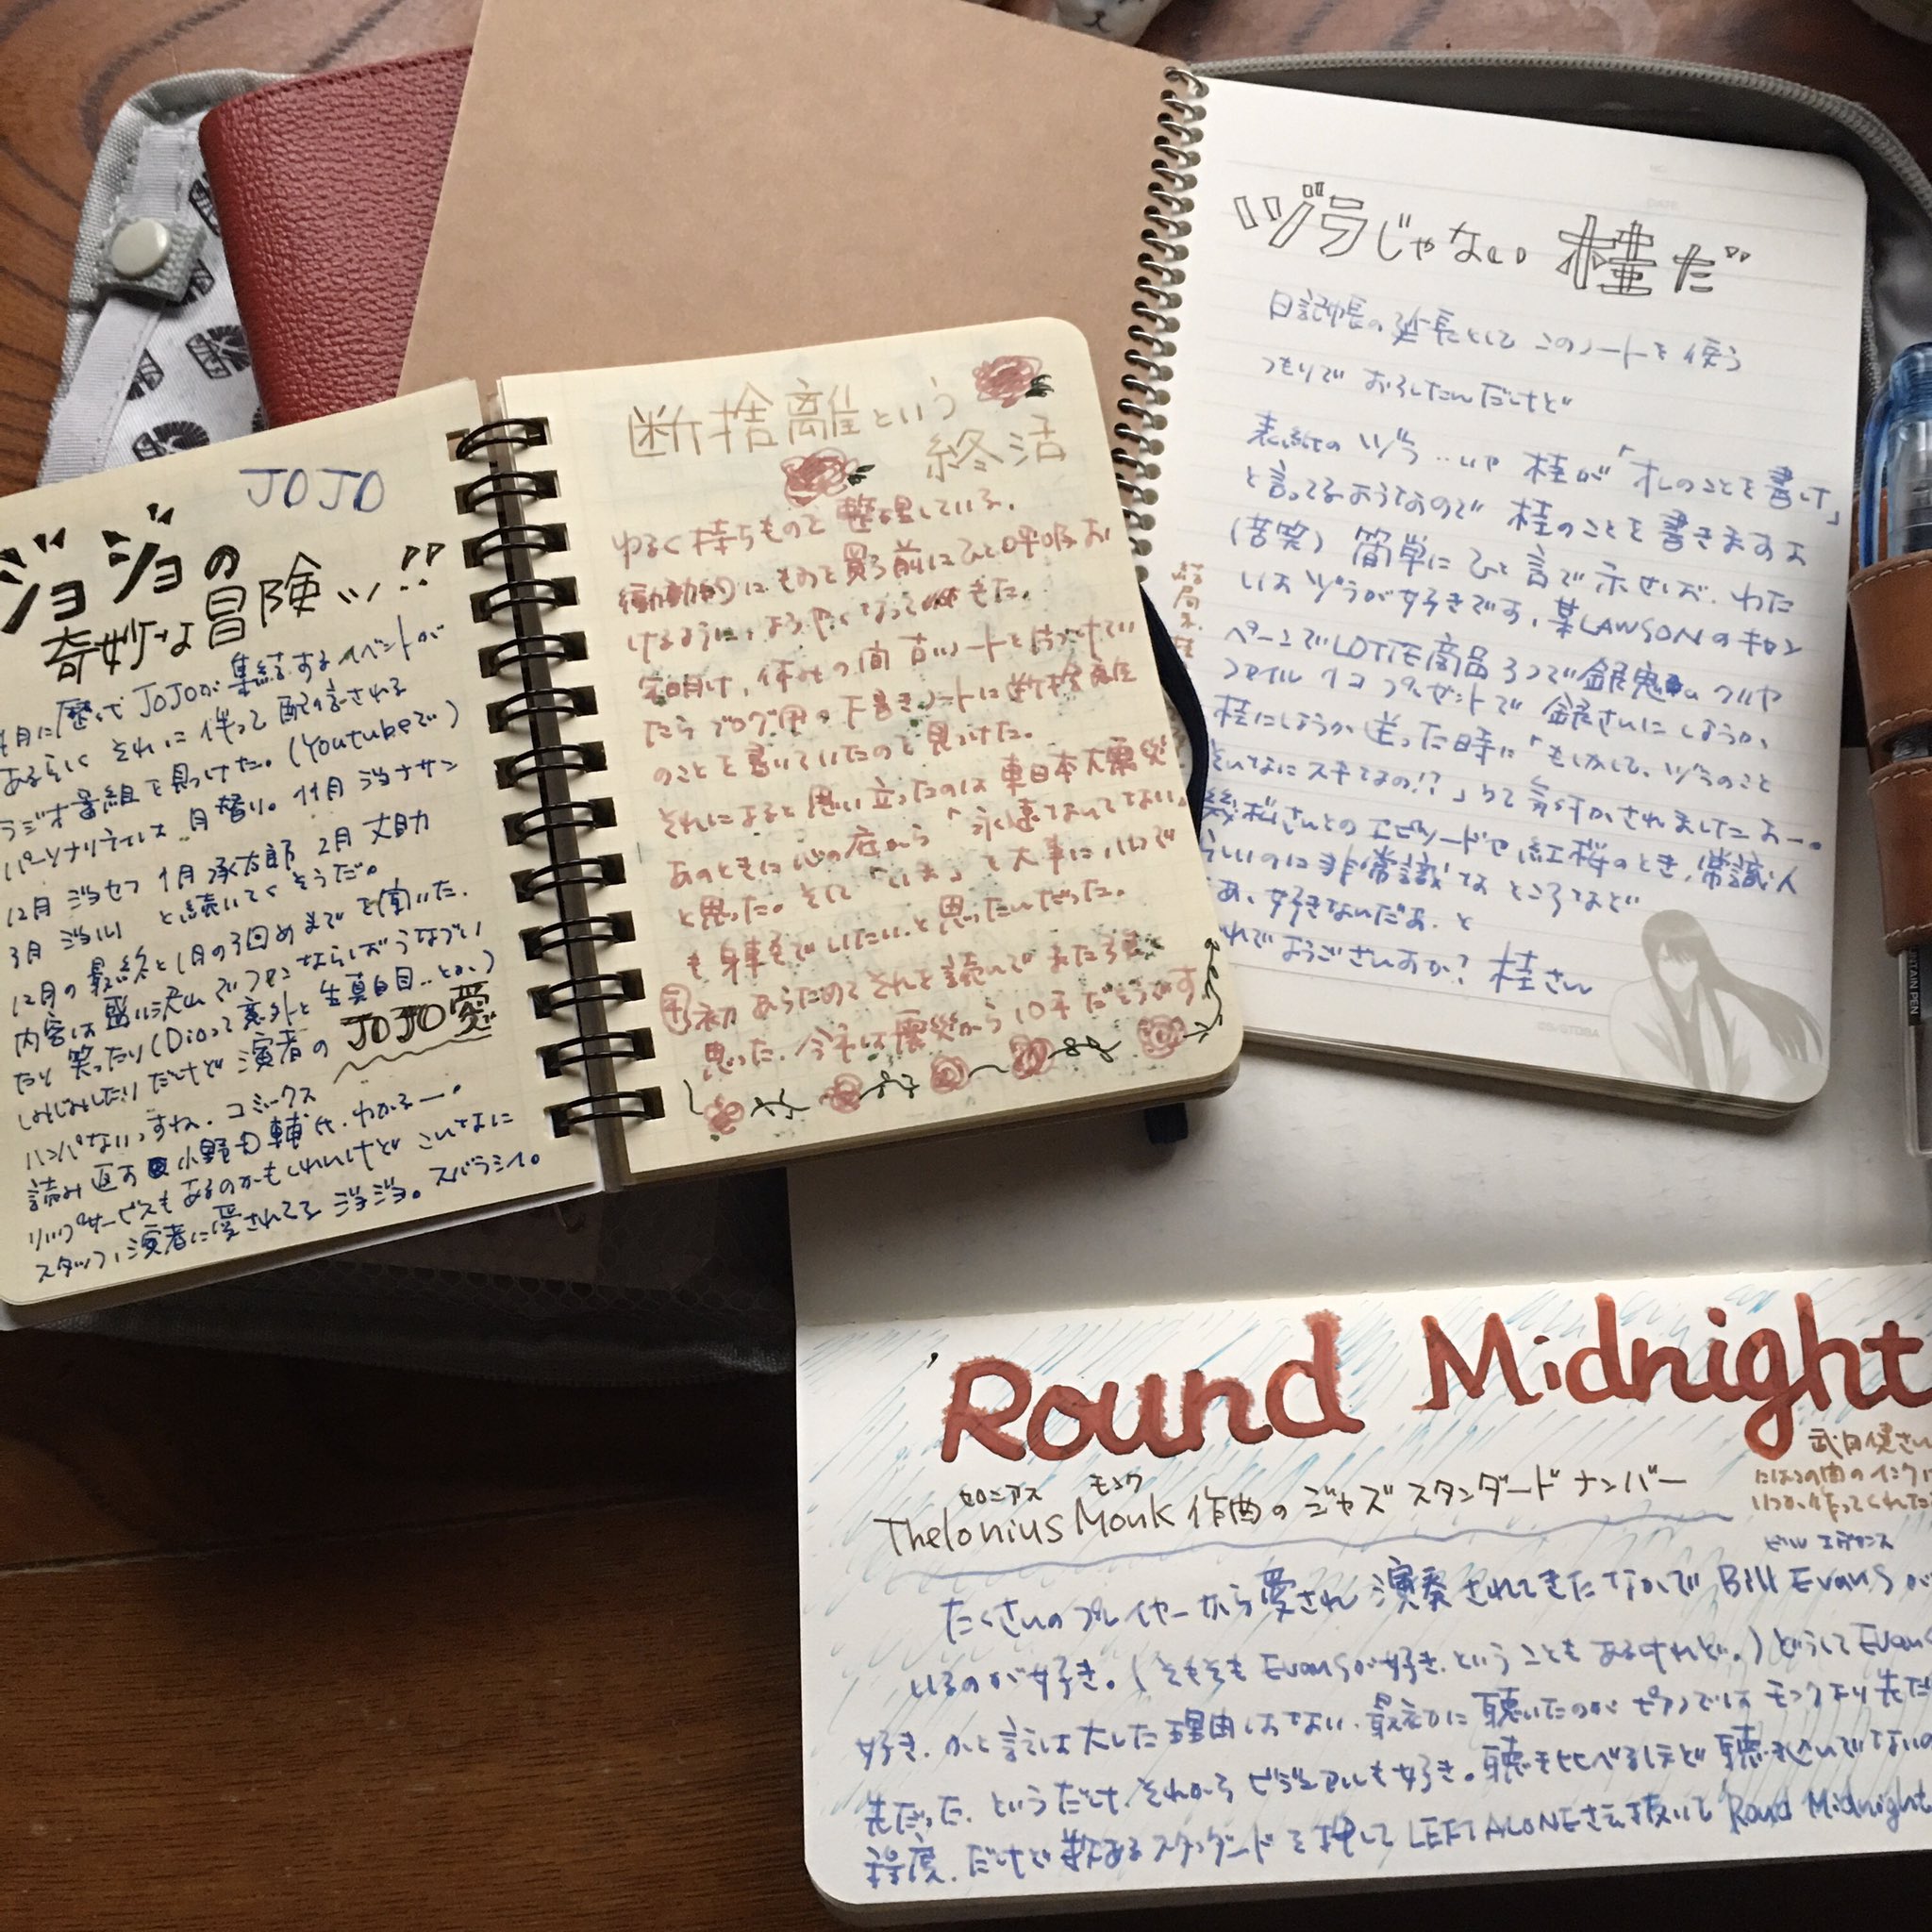 JOJO
ジョジョの
奇妙な冒険ッ!!
4月に歴代JOJOが集結するイベントが
あるらしく それに伴って配信される
ラジオ番組を見つけた。(Youtubeで)
パーソナリティは 月替り。11月 ジョナサン
12月 ジョセフ 1月 承太郎 2月 丈助
3月 ジョルノ と続いてくそうだ。
12月の最終と1月の3回めまでを聞いた。
内容は盛り沢山でファンならば うなづい
たり 笑ったり(Dioって意外と生真面目‥とか)
しみじみしたり だけど 演者の JOJO愛が
ハンパないっすね。コミックス
読み返す 小野大輔氏、わかるー。
リップサービスもあるのかもしれないけど こんなに
スタッフ、演者に愛されてる ジョジョ。スバラシイ。
断捨離という
終活
ゆるく持ちものを整理している。
衝動的にものを買う前にひと呼吸お
けるように、ようやくなってきた。
年明け、休みの間 古いノートを片づけてい
たら ブログ用の下書きノートに断捨離
のことを書いていたのを見つけた。
それによると思い立ったのは 東日本大震災
あのときに心の底から「永遠なんてない」
と思った。そして「いま」を大事に
も身軽でいたい、と思ったんだった。
年初 あらためてそれを読んで また
思った。今年は震災から10年だそうです。
ヅラじゃない 桂だ
日記帳の延長として このノートを使う
つもりで おろしたんだけど
表紙の ヅラ‥いや 桂が「オレのことを書け」
と言ってるようなので 桂のことを書きますよ
(苦笑) 簡単に ひと言で示せば、わた
しは ヅラが好きです。某LAWSONのキャン
ペーンでLOTTE商品3つで銀魂のクリヤ
ファイル 1コ プレゼントで 銀さんにしようか、
桂にしようか 迷った時に「もしかして、ヅラのこと
そんなにスキなの!?」って気付かされましたよー。
幾松さんとのエピソードや 紅桜のとき、常識人
らしいのに非常識な ところなど
あ、好きなんだあ、と
これでようございますか? 桂さん
結局桂
'Round Midnight
セロニアス モンク
Thelonius Monk 作曲の ジャズ スタンダード ナンバー
ビル エヴァンス
たくさんのプレイヤーから愛され 演奏されてきたなかで Bill Evans が
いるのが好き。(そもそも Evansが好き、ということも あるけれど。)どうして Evans
好き、かと言えば 大した理由はない。最初に聴いたのが ピアノでは モンクより 先だ
先だった、というだけ。それから ビジュアルも好き。聴き比べるほど 聴き込んでないの
程度。だけど 数ある スタンダードを 押して LEFT ALONEさえ抜いて Round Midnight